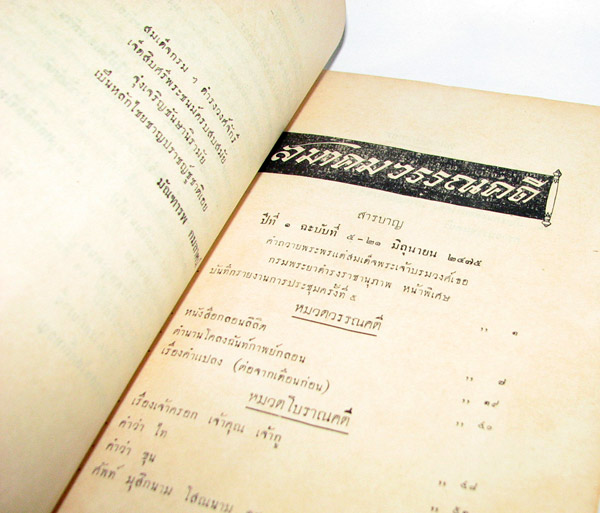 สมเด็จกรม ฯ ดำรงวงศ์จักรี
เจ็ดสิบศรีพระชนม์ครบสบสมัย
จุ่งเจริญชันษานิรามัย
เป็นหลักไชยชาญปราชญ์ชูชาติเอย
สมาคมวรรณคดี
สารบาญ
ปีที่ ๑ ฉะบับที่ ๕ - ๒๑ มิถุนายน ๒๔๗๕
คำถวายพระพรแด่สมเด็จพระเจ้าบรมวงศ์เธอ
กรมพระยาดำรงราชานุภาพ หน้าพิเศษ
บันทึกรายงานการประชุมครั้งที่ ๕ ,, ๑
หมวดวรรณคดี
หนังสือกลอนลิลิต ,, ๗
ตำนานโคลงฉันท์กาพย์กลอน ,, ๑๙
เรื่องคำแปลง (ต่อจากเดือนก่อน) ,, ๔๑
หมวดโบราณคดี
เรื่องเจ้าครอก เจ้าคุณ เจ้ากู ,, ๔๘
คำว่า ไท
คำว่า ขุน
ศัพท์ มุสิกนาม โสณนาม